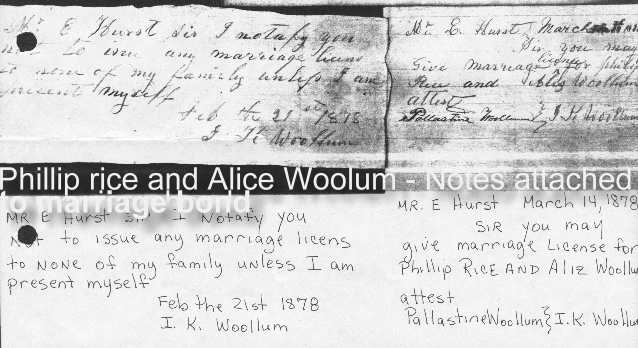 Mr E Hurst Sir I notafy you
not to isue any marriage licens
to none of my family unless I am
present myself
Feb the 21st 1878
I K Woollum
Mr. E. Hurst March
Sir you may
Give marriage license for
Rice and Aliz Woollum
attest
Pallastine Woollum } I K Woollum
Phillip rice and Alice Woolum - Notes attached
to marriage bond
MR E Hurst Sir I Notafy you
Not to issue any marriage licens
to NONE of my family unless I am
present myself
Feb the 21st 1878
I. K. Woollum
MR. E Hurst March 14, 1878
SiR you may
give marriage License for
Phillip RICE AND Aliz Woollu
attest
Pallastine Woollum } I. K. Woollu